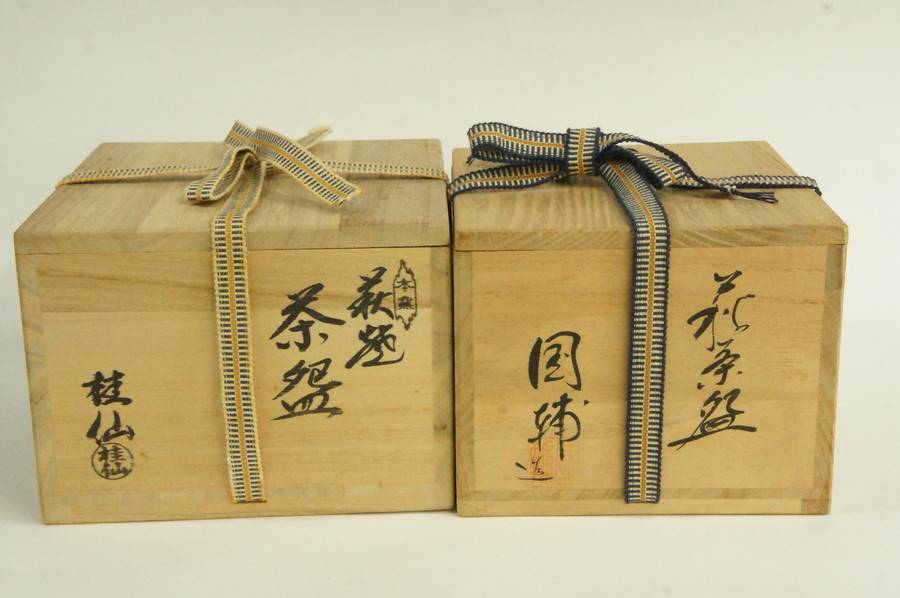 本窯
萩焼
茶盌
桂仙
桂仙
萩茶盌
國輔
造